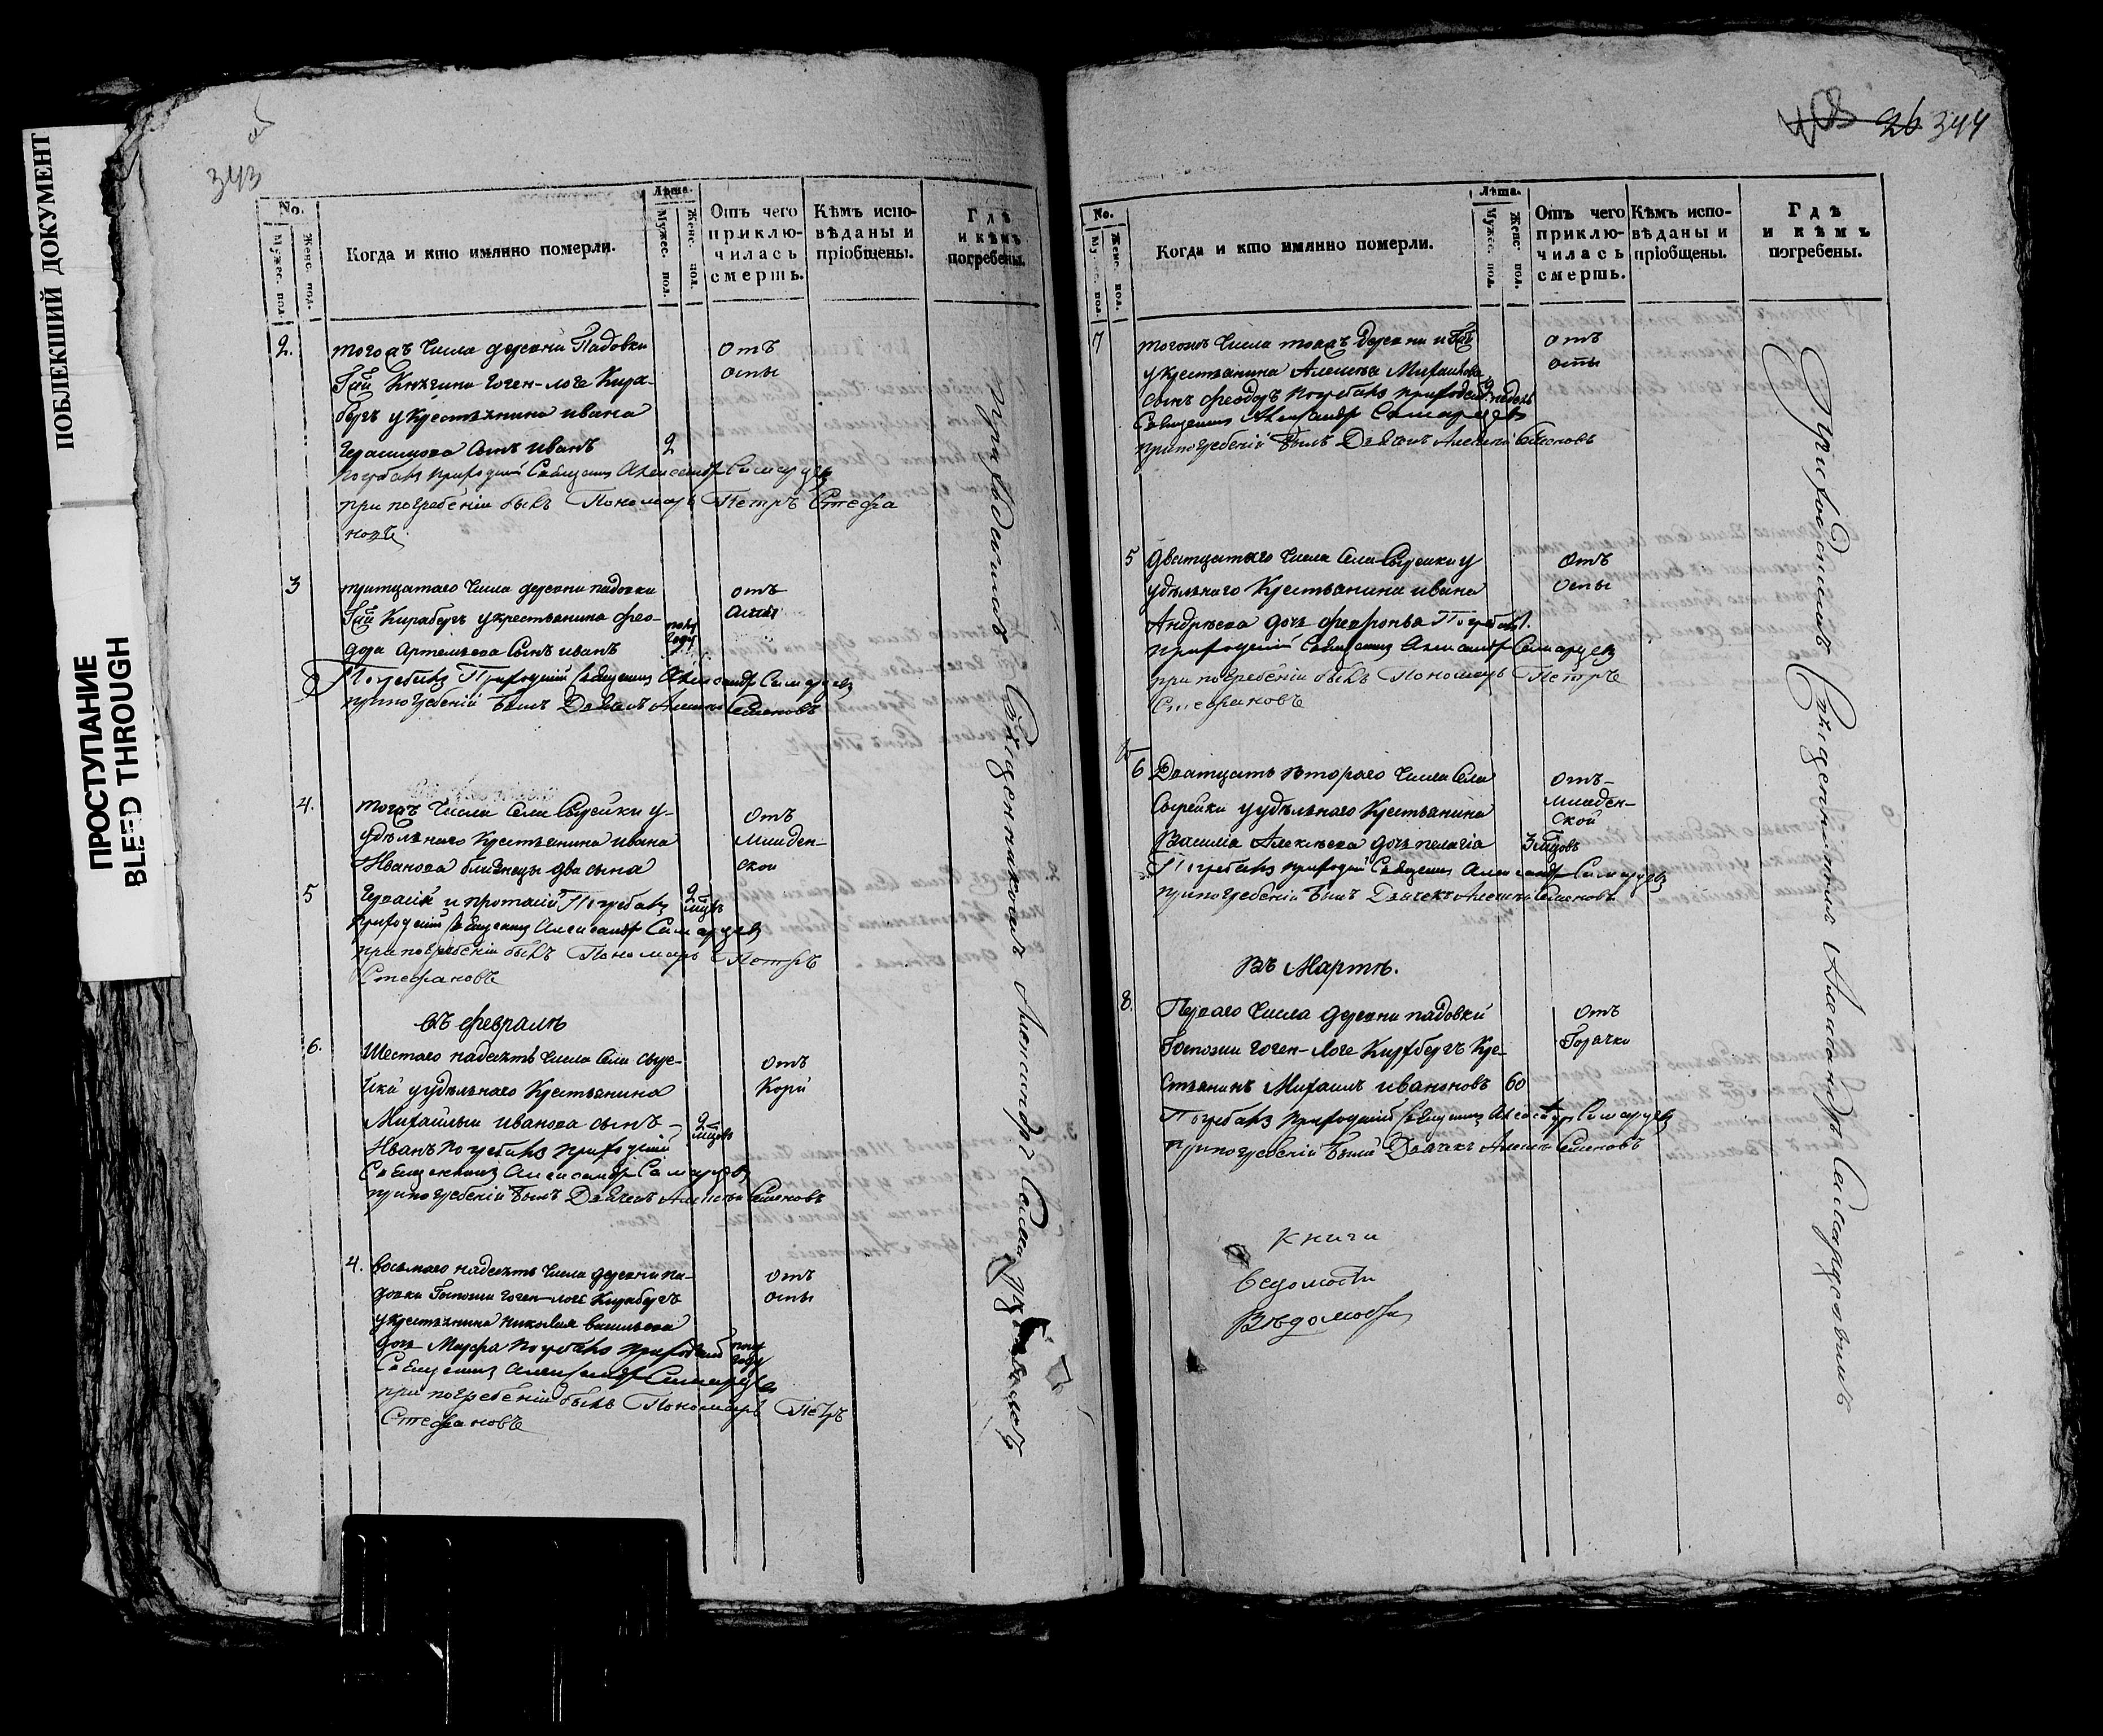 ПОБЛЕКШИЙ ДОКУМЕНТ
ПРОСТУПАНИЕ
BLEED THROUGH
об
343
No.
Мужес. пол.
Женс. пол.
Когда и кто имянно померли.
Лѣта.
Мужес. пол.
Женс. пол.
Отъ чего приключилась смерть.
Кѣмъ исповѣданы и пріобщены.
Гдѣ и кѣмъ погребены.
2.
тогожъ числа деревни Падовки
Гжи Княгини Гоген-логе Кира-
бергъ у крестьянина ивана
Герасимова сынъ иванъ
2
отъ
оспы
погребалъ приходскій Священникъ Александръ Самарцевъ
при погребеніи былъ Пономарь Петръ Стефа
новъ
3
тритцатаго числа деревни падовки
Гжи Кирабергъ у крестьянина фео-
дора Артемьева сынъ иванъ
полу
году
отъ
оспы
Погребалъ Приходскій Священникъ Александръ Самарцевъ
при погребеніи былъ Дьячекъ Алексѣй Семеновъ
4.
тогожъ числа села Сырейки у-
удѣльнаго крестьянина ивана
Иванова близнецы два сына
отъ
младен-
ской
5
и протасій Погребалъ
2
мцовъ
Приходскій Священникъ Александръ Самарцевъ
при погребеніи былъ Пономарь Петръ
Стефановъ
въ февралѣ
6.
Шестаго надесять числа села сыре-
йки у удѣльнаго крестьянина
Михайлы иванова сынъ -
Иванъ погребалъ приходскій
2
мцовъ
отъ
Кори
Священникъ Александръ Самарцевъ
при погребеніи былъ Дьячекъ Алексѣй Семеновъ
4.
Восьмаго надесять числа деревни па-
довки Госпожи Гоген-логе Кирабергъ
у крестьянина николая васильева
дочь Марфа погребалъ приходскій
полу
году
отъ
оспы
Священникъ Александръ Самарцевъ
при погребеніи былъ Пономарь Петръ
Стефановъ
Приходскимъ Священникомъ Александромъ
26 344
No.
Мужес. пол.
Женс. пол.
Когда и кто имянно померли.
Лѣта.
Мужес. пол.
Женс. пол.
Отъ чего приключилась смерть.
Кѣмъ исповѣданы и пріобщены.
Гдѣ и кѣмъ погребены.
7
тогожъ числа тояжъ деревни и Гжи
у крестьянина Алексѣя Михайлова
сынъ феодоръ погребалъ приходскій
недель
отъ
оспы
Священникъ Александръ Самарцевъ
при погребеніи былъ Дьячекъ Алексѣй Семеновъ
5
дватцатаго числа села Сырейки у
удѣльнаго крестьянина ивана
Андрѣева дочь февронья Погребалъ
1.
отъ
оспы
приходскій Священникъ Александръ Самарцевъ
при погребеніи былъ Пономарь Петръ
Стефановъ
6
Дватцать втораго числа села
Сырейки у удѣльнаго крестьянина
Василія Алексѣева дочь пелагія
3 мцовъ
отъ-
младен-
ской
Погребалъ приходскій Священникъ Александръ Самарцевъ
при погребеніи былъ Дьячекъ Алексѣй Семеновъ
Въ Мартѣ.
8.
Перваго числа деревни падовки
Госпожи Гоген-Логе Кирхбергъ кре-
стьянинъ Михаилъ ивановъ
60
отъ
Горячки
Погребалъ приходскій Священникъ Александръ Самарцевъ
при погребеніи былъ Дьячекъ Алексѣй Семеновъ
книги
ведомости
Вѣдомости
Приходскимъ Священникомъ Александромъ Самарцевымъ